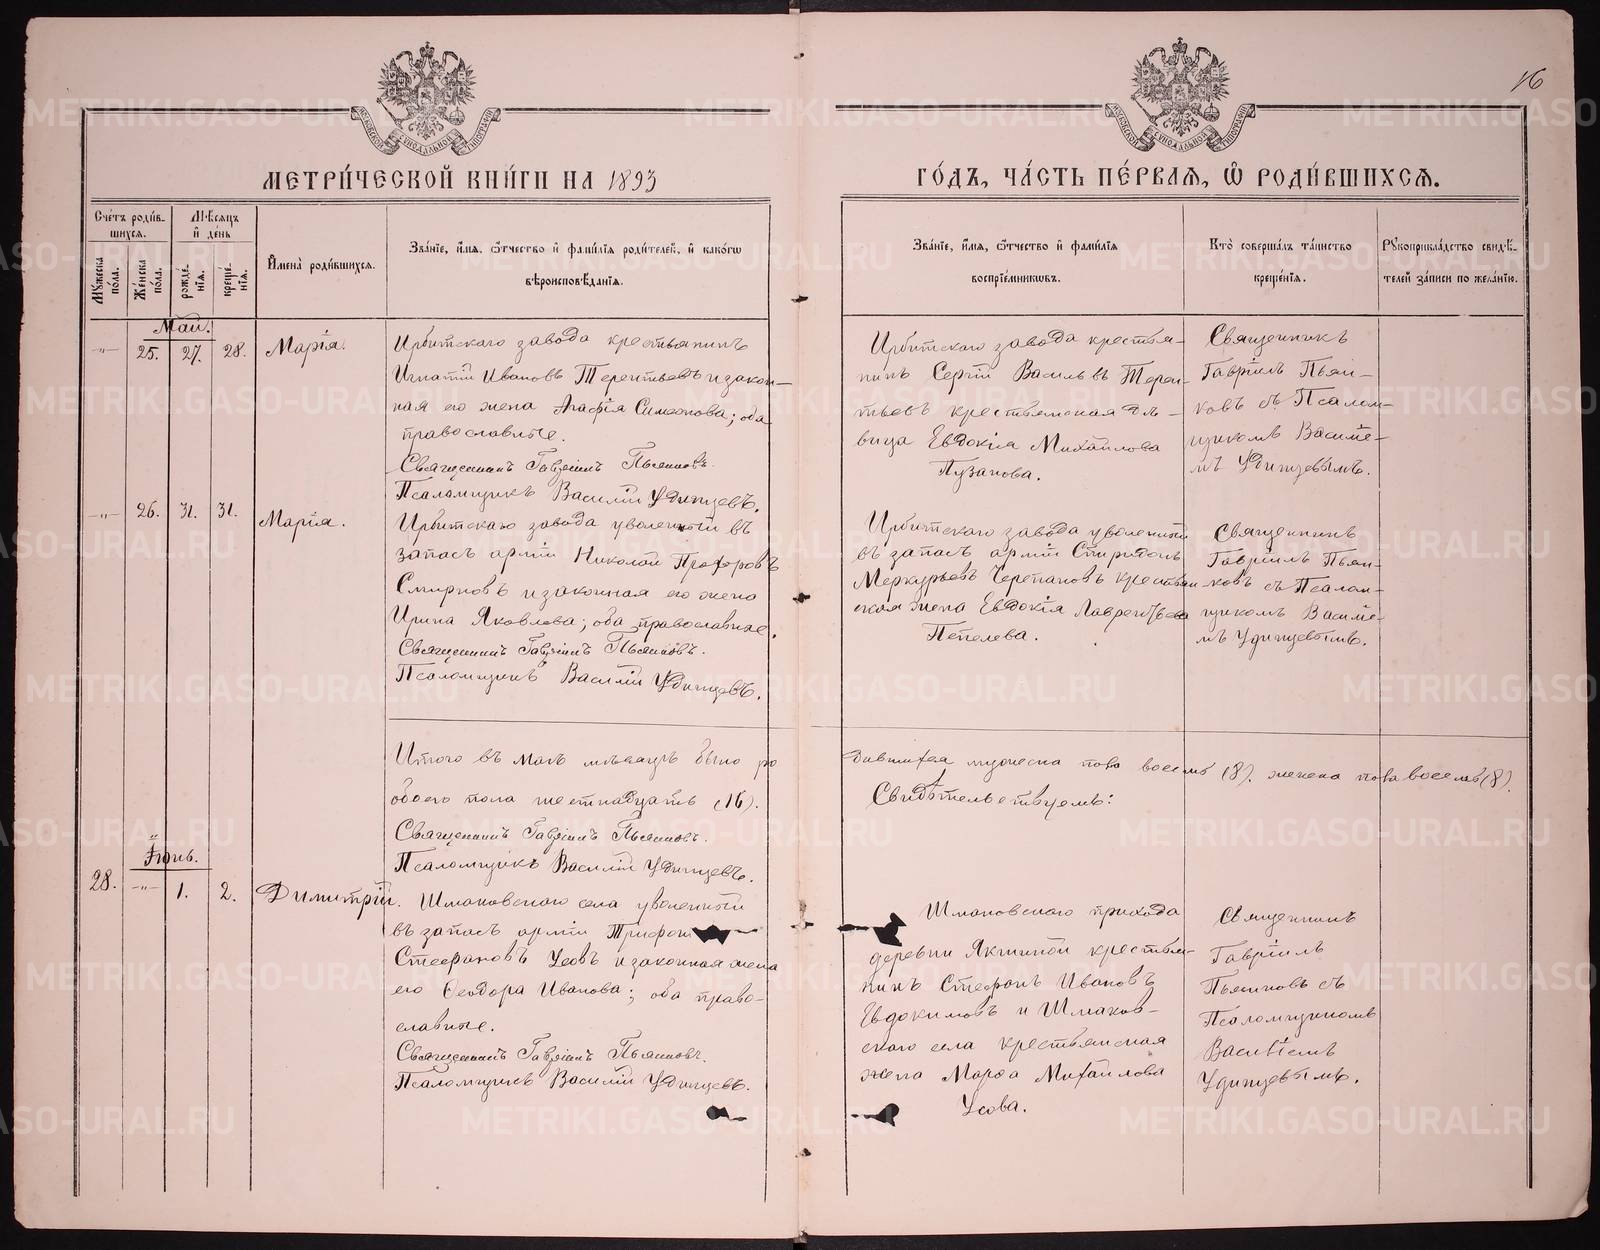 16
МЕТРИ́ЧЕСКОЙ КНИ́ГИ НА 1893
ГО́ДЪ, ЧА́СТЬ ПЕ́РВАѦ, Ѡ҆ РОДИ́ВШИХСѦ.
Сче́тъ роди́вшихсѧ.
Мѣ́сѧцъ и҆ де́нь
Мꙋ́жеска по́ла.
Же́нска по́ла.
рожде́нїѧ.
креще́нїѧ.
И҆мена̀ роди́вшихсѧ.
Зва́нїе, и҆́мѧ, ѻ҆́тчество и҆ фами́лїѧ роди́телей, и҆ како́гѡ
вѣроисповѣ́данїѧ.
Зва́нїе, и҆́мѧ, ѻ҆́тчество и҆ фами́лїѧ
воспрїе́мниковъ.
Кто̀ соверша́лъ та́инство
креще́нїѧ.
Рꙋкоприкла́дство свидѣ́-
телей за́писи по жела́нїю.
Май.
-"- 25. 27. 28. Марія.
Ирбитскаго завода крестьянинъ
Игнатій Ивановъ Терентьевъ и закон-
ная его жена Агафія Симеонова; оба
православные.
Священникъ Гавріилъ Пьянковъ.
Псаломщикъ Василій Удинцевъ.
Ирбитскаго завода крестья-
нинъ Сергій Васильевъ Терен-
тьевъ крестьянская дѣ-
вица Евдокія Михайлова
Пузанова.
Священникъ
Гавріилъ Пьян-
ковъ съ Псалом-
щикомъ Василіе-
мъ Удинцевымъ.
-"- 26. 31. 31. Марія.
Ирбитскаго завода уволенный въ
запасъ арміи Николай Прохоровъ
Смирновъ и законная его жена
Ирина Яковлева; оба православные.
Священникъ Гавріилъ Пьянковъ.
Псаломщикъ Василій Удинцевъ.
Ирбитскаго завода уволенный
въ запасъ арміи Спиридонъ
Меркурьевъ Черепановъ крестьян-
ская жена Евдокія Лаврентьева
Пепелева.
Священникъ
Гавріилъ Пьян-
ковъ съ Псалом-
щикомъ Василіе-
мъ Удинцевымъ.
Итого въ маѣ мѣсяцѣ было ро
дившихся мужеска пола восемь (8). женска пола восемь (8).
обоего пола шестнадцать (16).
Свидѣтельствуемъ:
Священникъ Гавріилъ Пьянковъ.
Псаломщикъ Василій Удинцевъ.
Іюнь.
28. -"- 1. 2. Димитрій.
Шмаковскаго села уволенный
въ запасъ арміи Трифон
Стефановъ Усовъ и законная жена
его Ѳеодора Иванова; оба право-
славные.
Священникъ Гавріилъ Пьянковъ.
Псаломщикъ Василій Удинцевъ.
Шмаковскаго прихода
деревни Якшиной крестья-
нинъ Стефанъ Ивановъ
Евдокимовъ и Шмаков-
скаго села крестьянская
жена Марѳа Михайлова
Усова.
Священникъ
Гавріилъ
Пьянковъ съ
Псаломщикомъ
Василіемъ
Удинцевымъ.
METRIKI.GASO-URAL.RU